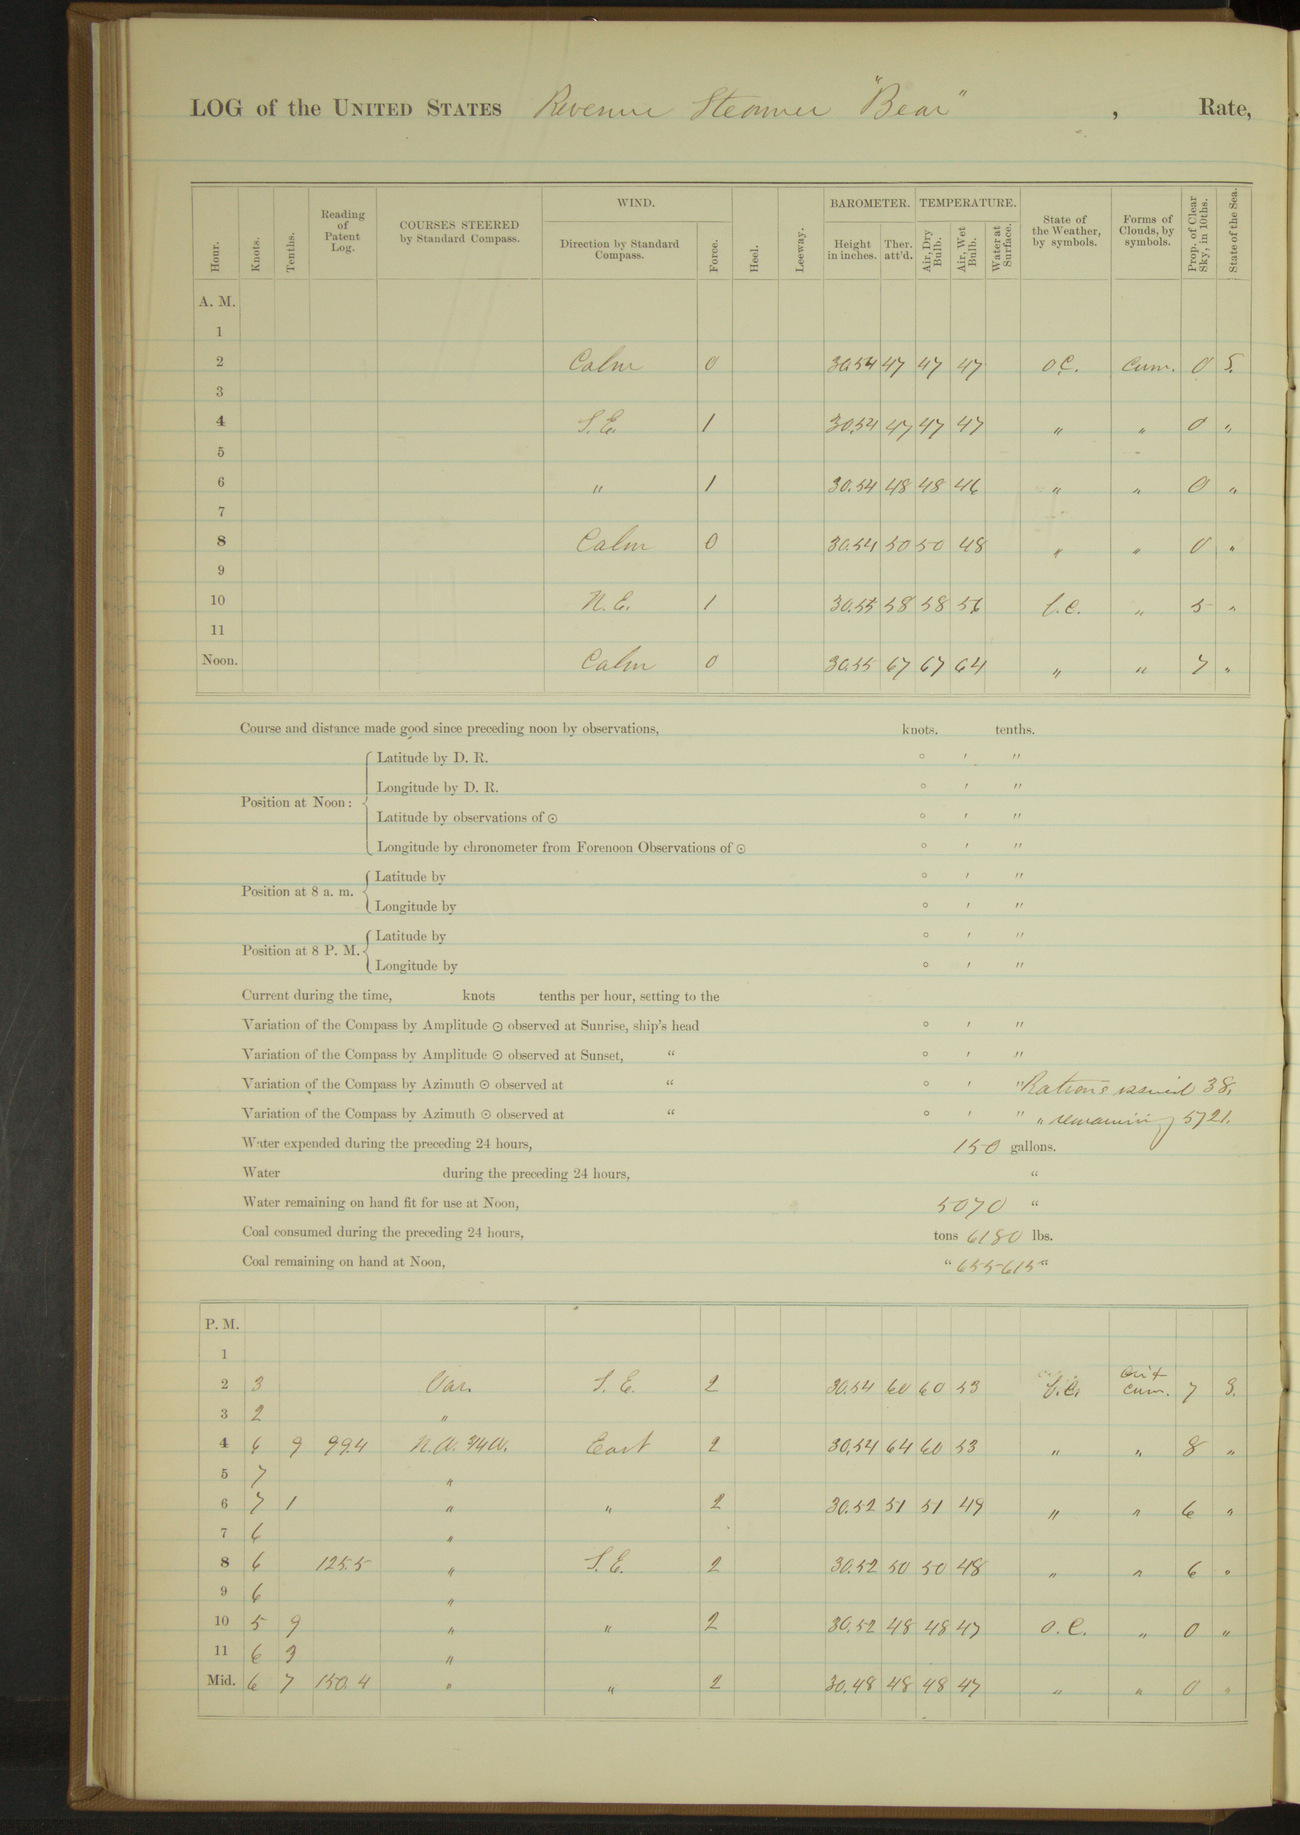 LOG of the UNITED STATES Revenue Steamer "Bear" , Rate,
Hour. Knots. Tenths. Reading of Patent Log. COURSES STEERED by Standard Compass. WIND. Direction by Standard Compass. Force. Heel. Leeway. BAROMETER. Height in inches. Ther. att'd. TEMPERATURE. Air, Dry Bulb. Air, Wet Bulb. Water at Surface. State of the Weather, by symbols. Forms of Clouds, by symbols. Prop. of Clear Sky, in 10ths. State of the Sea.
A. M.
1
2 Calm 0 30.54 47 47 47 o.c. Cum. 0 S.
3
4 S.E. 1 30.54 47 47 47 " " 0 "
5
6 " 1 30.54 48 48 46 " " 0 "
7
8 Calm 0 30.54 50 50 48 " " 0 "
9
10 N.E. 1 30.55 58 58 56 b.c. " 5 "
11
Noon. Calm 0 30.55 67 67 64 " " 7 "
Course and distance made good since preceding noon by observations, knots. tenths.
Position at Noon:
Latitude by D. R. ° ′ ″
Longitude by D. R. ° ′ ″
Latitude by observations of ⊙ ° ′ ″
Longitude by chronometer from Forenoon Observations of ⊙ ° ′ ″
Position at 8 a. m.
Latitude by ° ′ ″
Longitude by ° ′ ″
Position at 8 P. M.
Latitude by ° ′ ″
Longitude by ° ′ ″
Current during the time, knots tenths per hour, setting to the
Variation of the Compass by Amplitude ⊙ observed at Sunrise, ship's head ° ′ ″
Variation of the Compass by Amplitude ⊙ observed at Sunset, " ° ′ ″
Variation of the Compass by Azimuth ⊙ observed at " ° ′ ″ Rations issued 38,
Variation of the Compass by Azimuth ⊙ observed at " ° ′ ″ " remaining 5721.
Water expended during the preceding 24 hours, 150 gallons.
Water during the preceding 24 hours, "
Water remaining on hand fit for use at Noon, 5070 "
Coal consumed during the preceding 24 hours, tons 6180 lbs.
Coal remaining on hand at Noon, " 655615 "
P. M.
1
2 3 Var. S.E. 2 30.54 60 60 53 b.c. Cum. 7 S.
3 2 "
4 6 9 99.4 N.W. 3/4 W. East 2 30.54 64 60 53 " " 8 "
5 7 "
6 7 1 " " 2 30.52 51 51 49 " " 6 "
7 6 "
8 6 125.5 " S.E. 2 30.52 50 50 48 " " 6 "
9 6 "
10 5 9 " " 2 30.52 48 48 47 o.c. " 0 "
11 6 3 "
Mid. 6 7 150.4 " " 2 30.48 48 48 47 " " 0 "